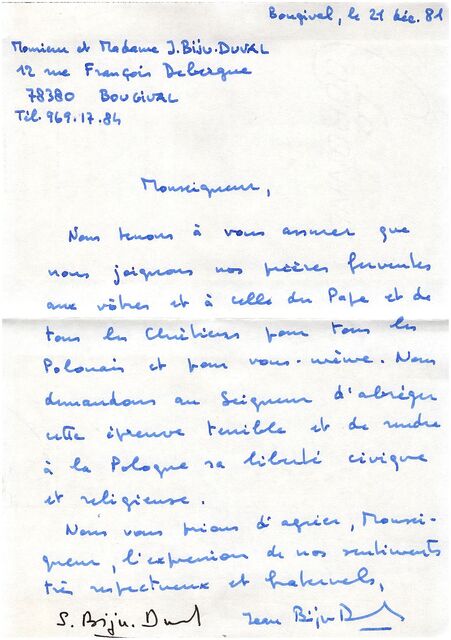 Bougival, le 21 déc. 81
Monsieur et Madame J. BIJU-DUVAL
12 rue François Debergue
78380 BOUGIVAL
Tél. 969.17.84
Monseigneur,
Nous tenons à vous assurer que
nous joignons nos prières ferventes
aux vôtres et à celle du Pape et de
tous les Chrétiens pour tous les
Polonais et pour vous-même. Nous
demandons au Seigneur d'abréger
cette épreuve terrible et de rendre
à la Pologne sa liberté civique
et religieuse.
Nous vous prions d'agréer, Monsei-
gneur, l'expression de nos sentiments
très respectueux et fraternels,
S. Biju-Duval Jean Biju-Duval